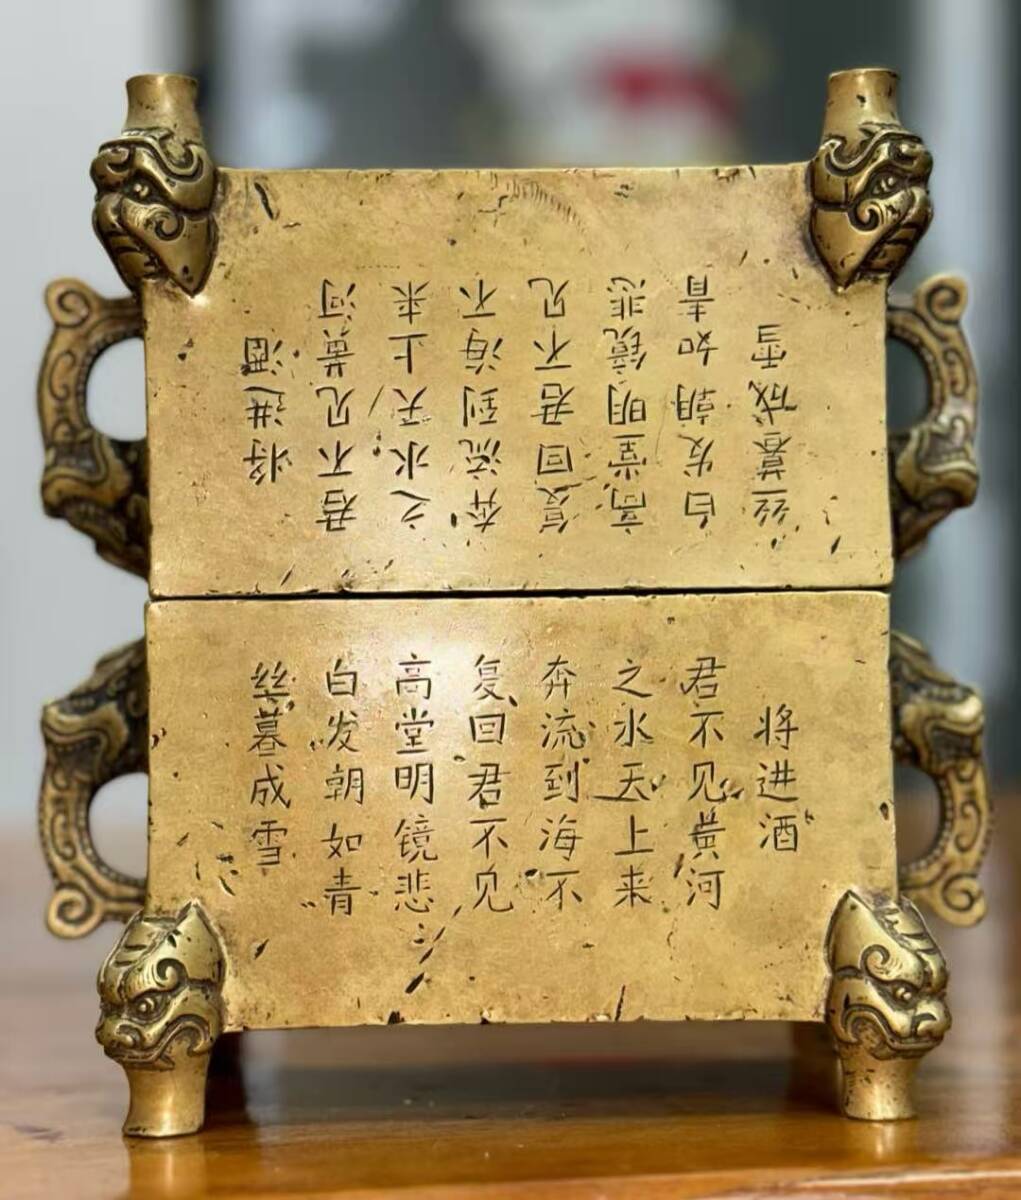 将进酒
君不见黄河
之水天上来
奔流到海不
复回君不见
高堂明镜悲
白发朝如青
丝暮成雪
将进酒
君不见黄河
之水天上来
奔流到海不
复回君不见
高堂明镜悲
白发朝如青
丝暮成雪